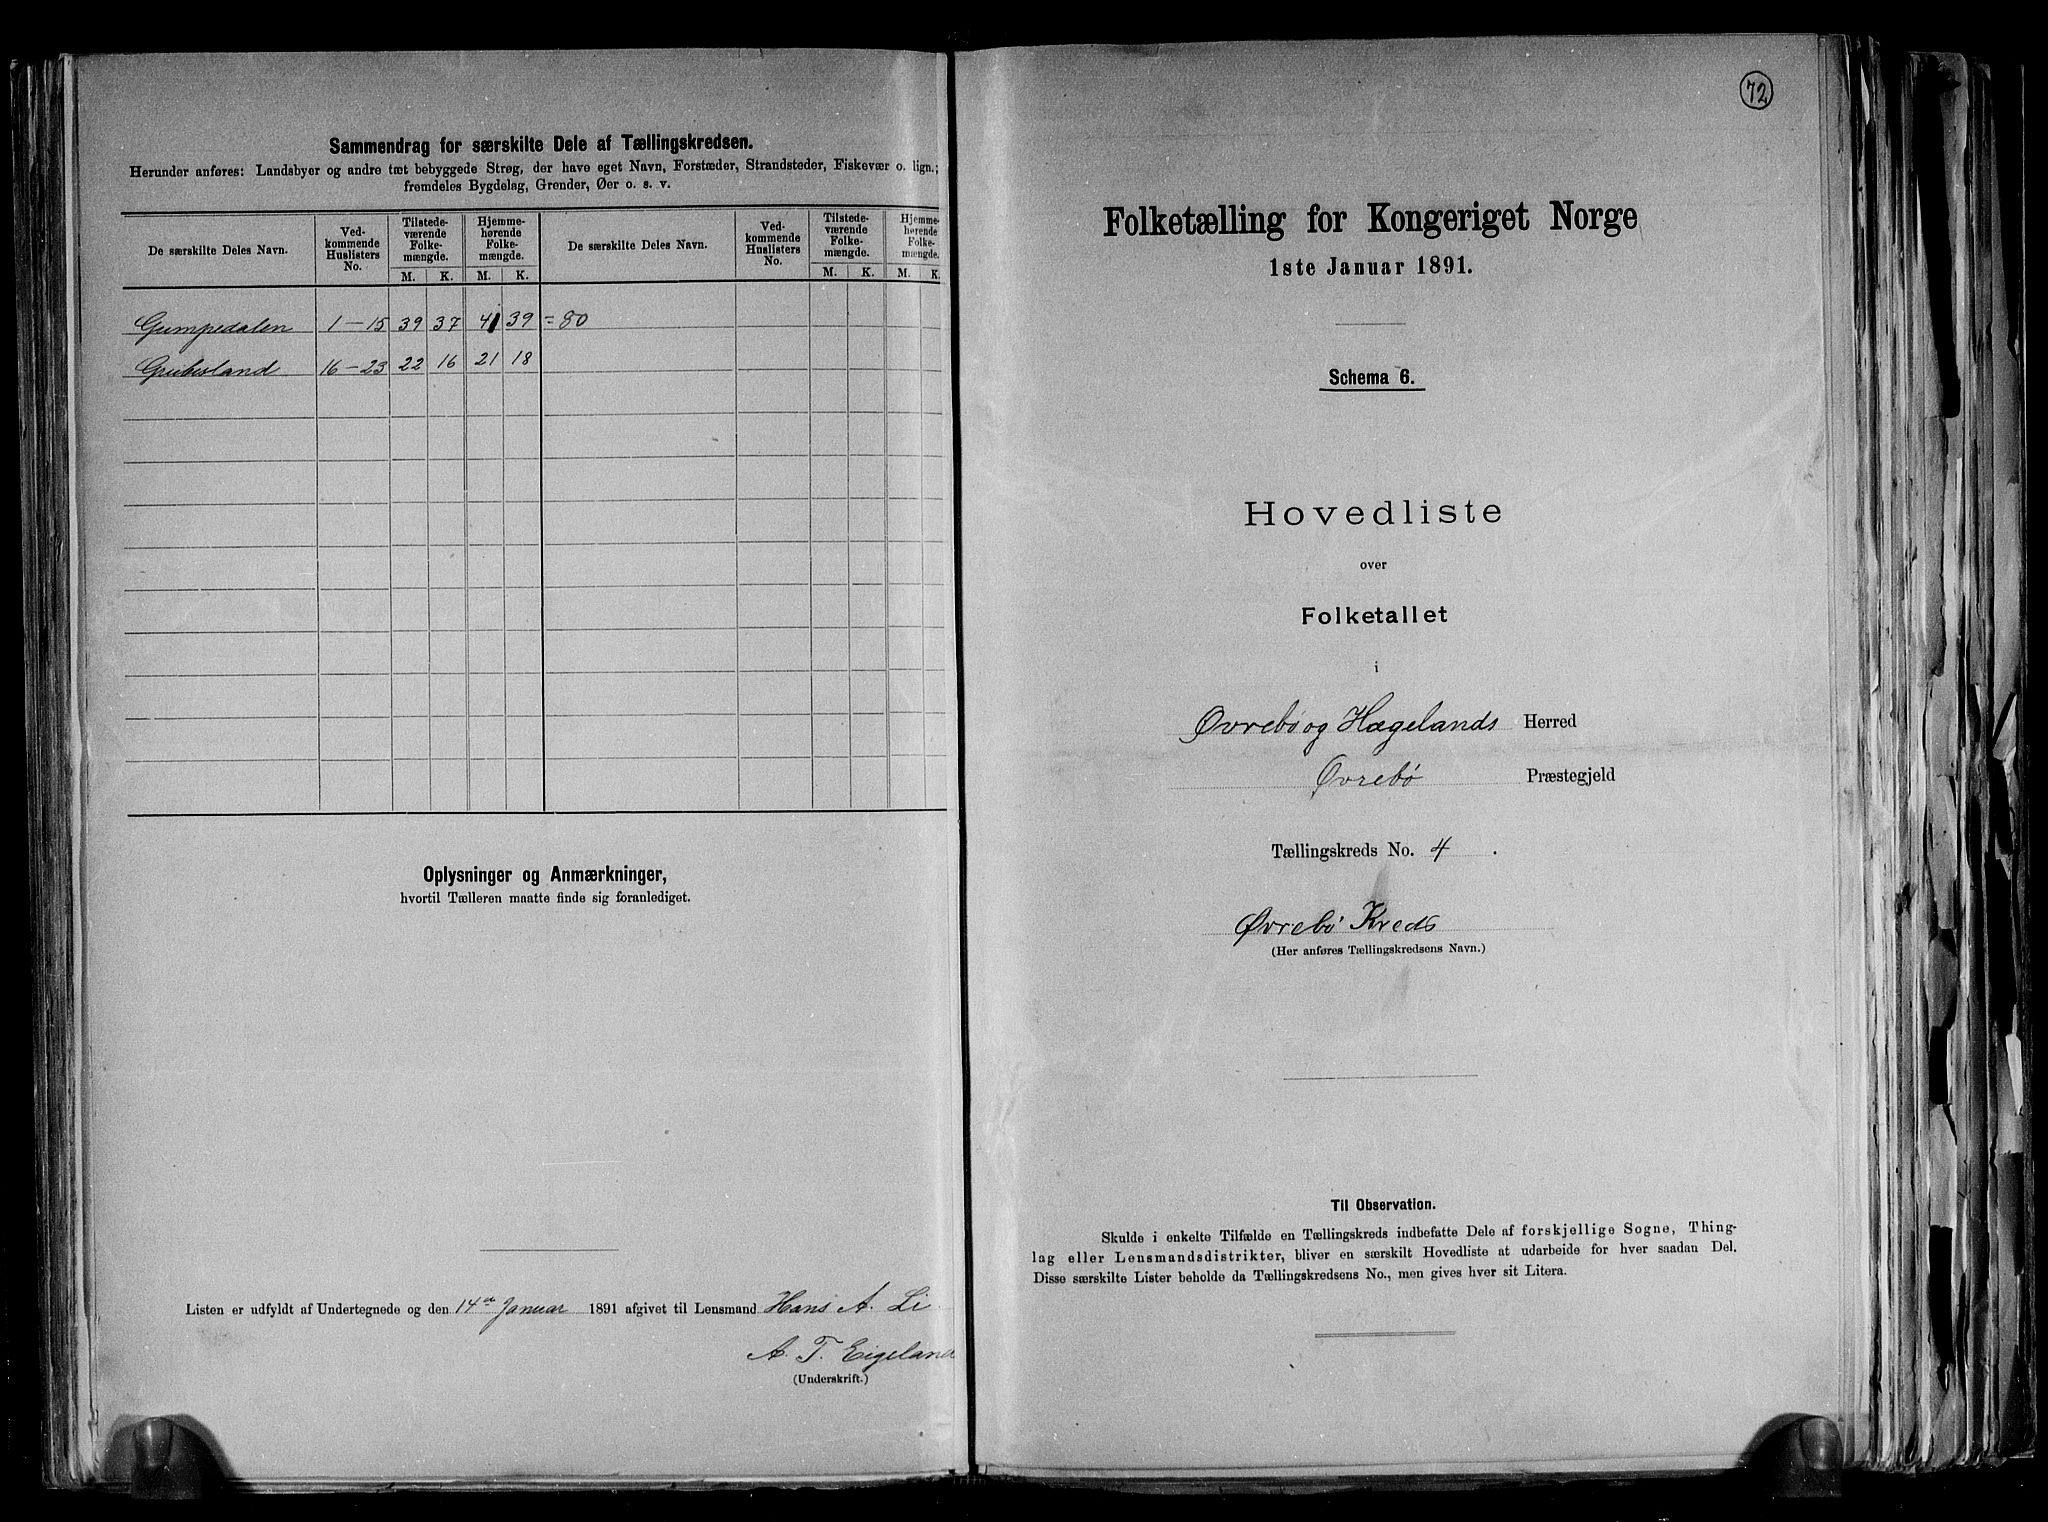 Sammendrag for særskilte Dele af Tællingskredsen.
Herunder anføres: Landsbyer og andre tæt bebyggede Strøg, der have eget Navn, Forstæder, Strandsteder, Fiskevær o. lign.;
fremdeles Bygdelag, Grender, Øer o. s. v.
De særskilte Deles Navn. Ved-kommende Huslisters No. Tilstede-værende Folke-mængde. Hjemme-hørende Folke-mængde. De særskilte Deles Navn. Ved-kommende Huslisters No. Tilstede-værende Folke-mængde. Hjemme-hørende Folke-mængde.
M. K. M. K. M. K. M. K.
Gumpedalen 1-15 39 37 41 39 =80
Greibesland 16-23 22 16 21 18
Oplysninger og Anmærkninger,
hvortil Tælleren maatte finde sig foranlediget.
Listen er udfyldt af Undertegnede og den 14de Januar 1891 afgivet til Lensmand Hans A. Li
A. T. Eigeland
(Underskrift.)
72
Folketælling for Kongeriget Norge
1ste Januar 1891.
Schema 6.
Hovedliste
over
Folketallet
i
Øvrebø og Hægelands Herred
Øvrebø Præstegjeld
Tællingskreds No. 4.
Øvrebø Kreds
(Her anføres Tællingskredsens Navn.)
Til Observation.
Skulde i enkelte Tilfælde en Tællingskreds indbefatte Dele af forskjellige Sogne, Thing-
lag eller Lensmandsdistrikter, bliver en særskilt Hovedliste at udarbeide for hver saadan Del.
Disse særskilte Lister beholde da Tællingskredsens No., men gives hver sit Litera.